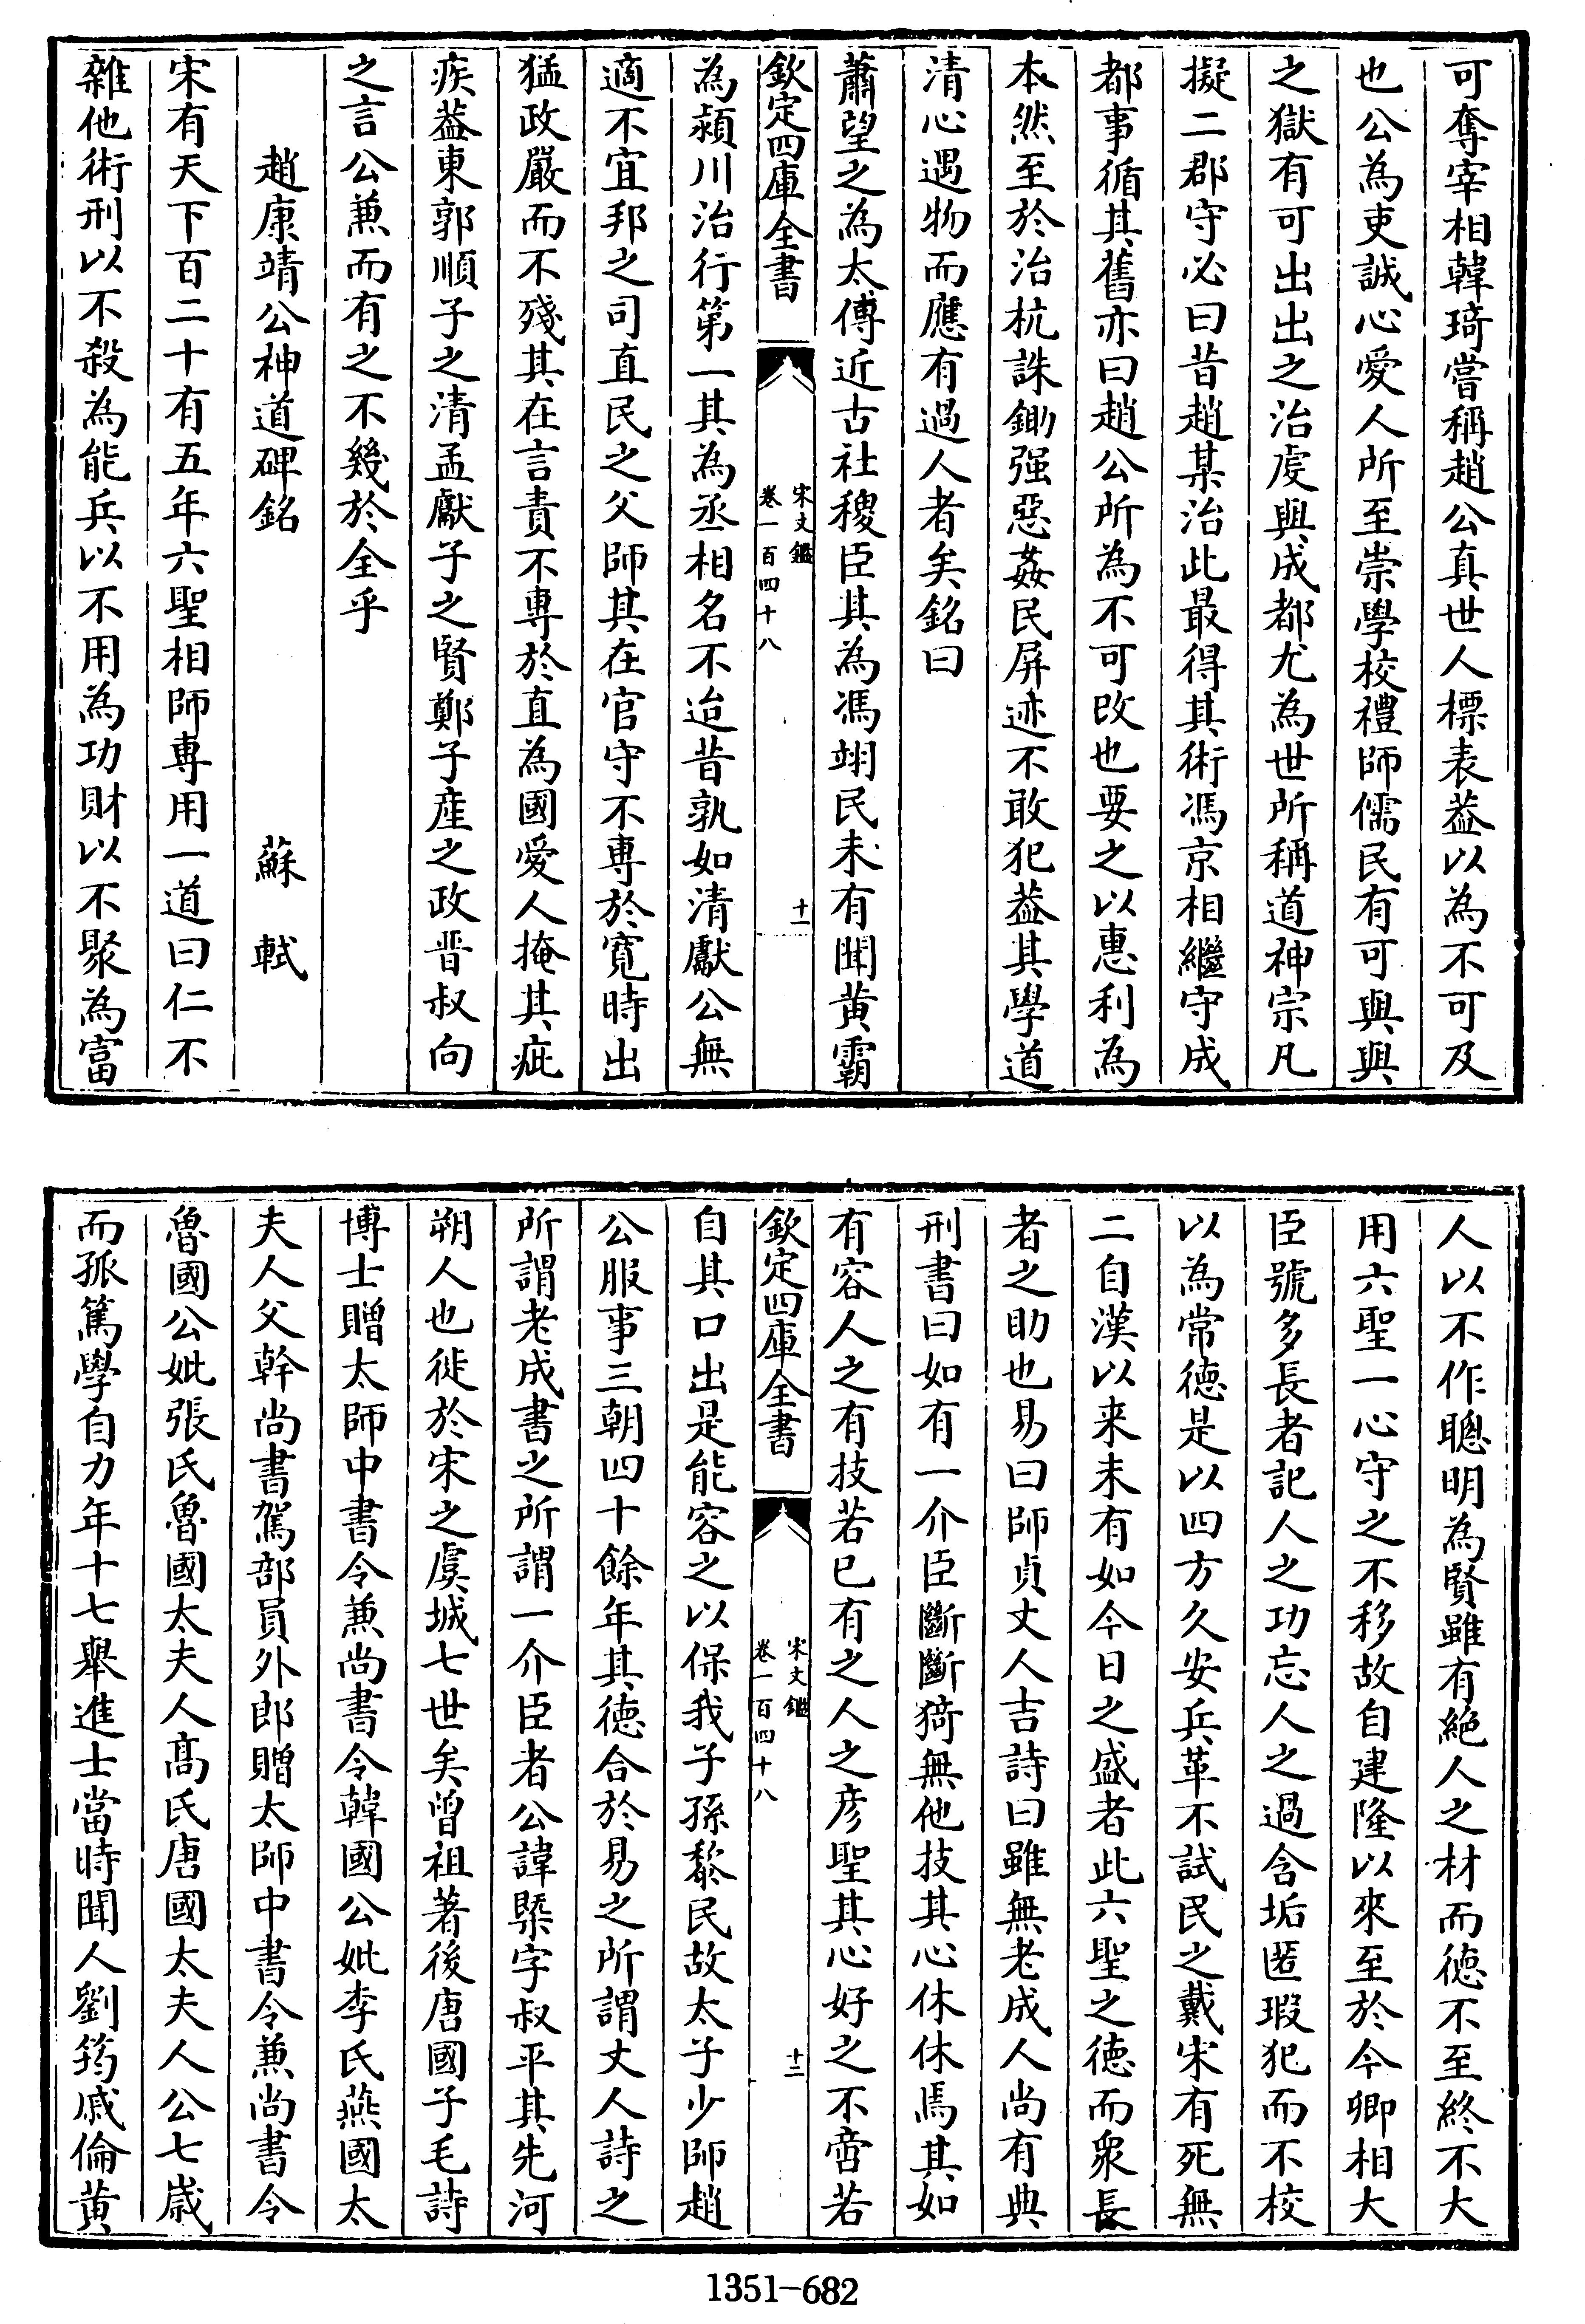 可奪宰相韓琦嘗稱趙公真世人標表葢以為不可及
也公為吏誠心愛人所至崇學校禮師儒民有可與與
之獄有可出出之治䖍與成都尤為世所稱道神宗凡
擬二郡守必曰昔趙某治此最得其術馮京相繼守成
都事循其舊亦曰趙公所為不可改也要之以惠利為
本然至於治杭誅鋤强惡姦民屏迹不敢犯葢其學道
清心遇物而應有過人者矣銘曰
蕭望之為太傅近古社稷臣其為馮翊民未有聞黄霸
欽定四庫全書
宋文鑑
卷一百四十八
十一
為潁川治行第一其為丞相名不迨昔孰如清獻公無
適不宜邦之司直民之父師其在官守不專於寛時出
猛政嚴而不殘其在言責不專於直為國愛人掩其疵
疾葢東郭順子之清孟獻子之賢鄭子産之政晋叔向
之言公兼而有之不幾於全乎
趙康靖公神道碑銘　蘇軾
宋有天下百二十有五年六聖相師專用一道曰仁不
雜他術刑以不殺為能兵以不用為功財以不聚為富
人以不作聰明為賢雖有絶人之材而徳不至終不大
用六聖一心守之不移故自建隆以來至於今卿相大
臣號多長者記人之功忘人之過含垢匿瑕犯而不校
以為常徳是以四方久安兵革不試民之戴宋有死無
二自漢以来未有如今日之盛者此六聖之徳而衆長
者之助也易曰師貞丈人吉詩曰雖無老成人尚有典
刑書曰如有一介臣斷斷猗無他技其心休休焉其如
有容人之有技若已有之人之彦聖其心好之不啻若
欽定四庫全書
宋文鑑
卷一百四十八
十二
自其口出是能容之以保我子孫黎民故太子少師趙
公服事三朝四十餘年其徳合於易之所謂丈人詩之
所謂老成書之所謂一介臣者公諱槩字叔平其先河
朔人也徙於宋之虞城七世矣曾祖著後唐國子毛詩
博士贈太師中書令兼尚書令韓國公妣李氏燕國太
夫人父幹尚書駕部員外郎贈太師中書令兼尚書令
魯國公妣張氏魯國太夫人髙氏唐國太夫人公七歲
而孤篤學自力年十七舉進士當時聞人劉筠戚倫黄
1351-682